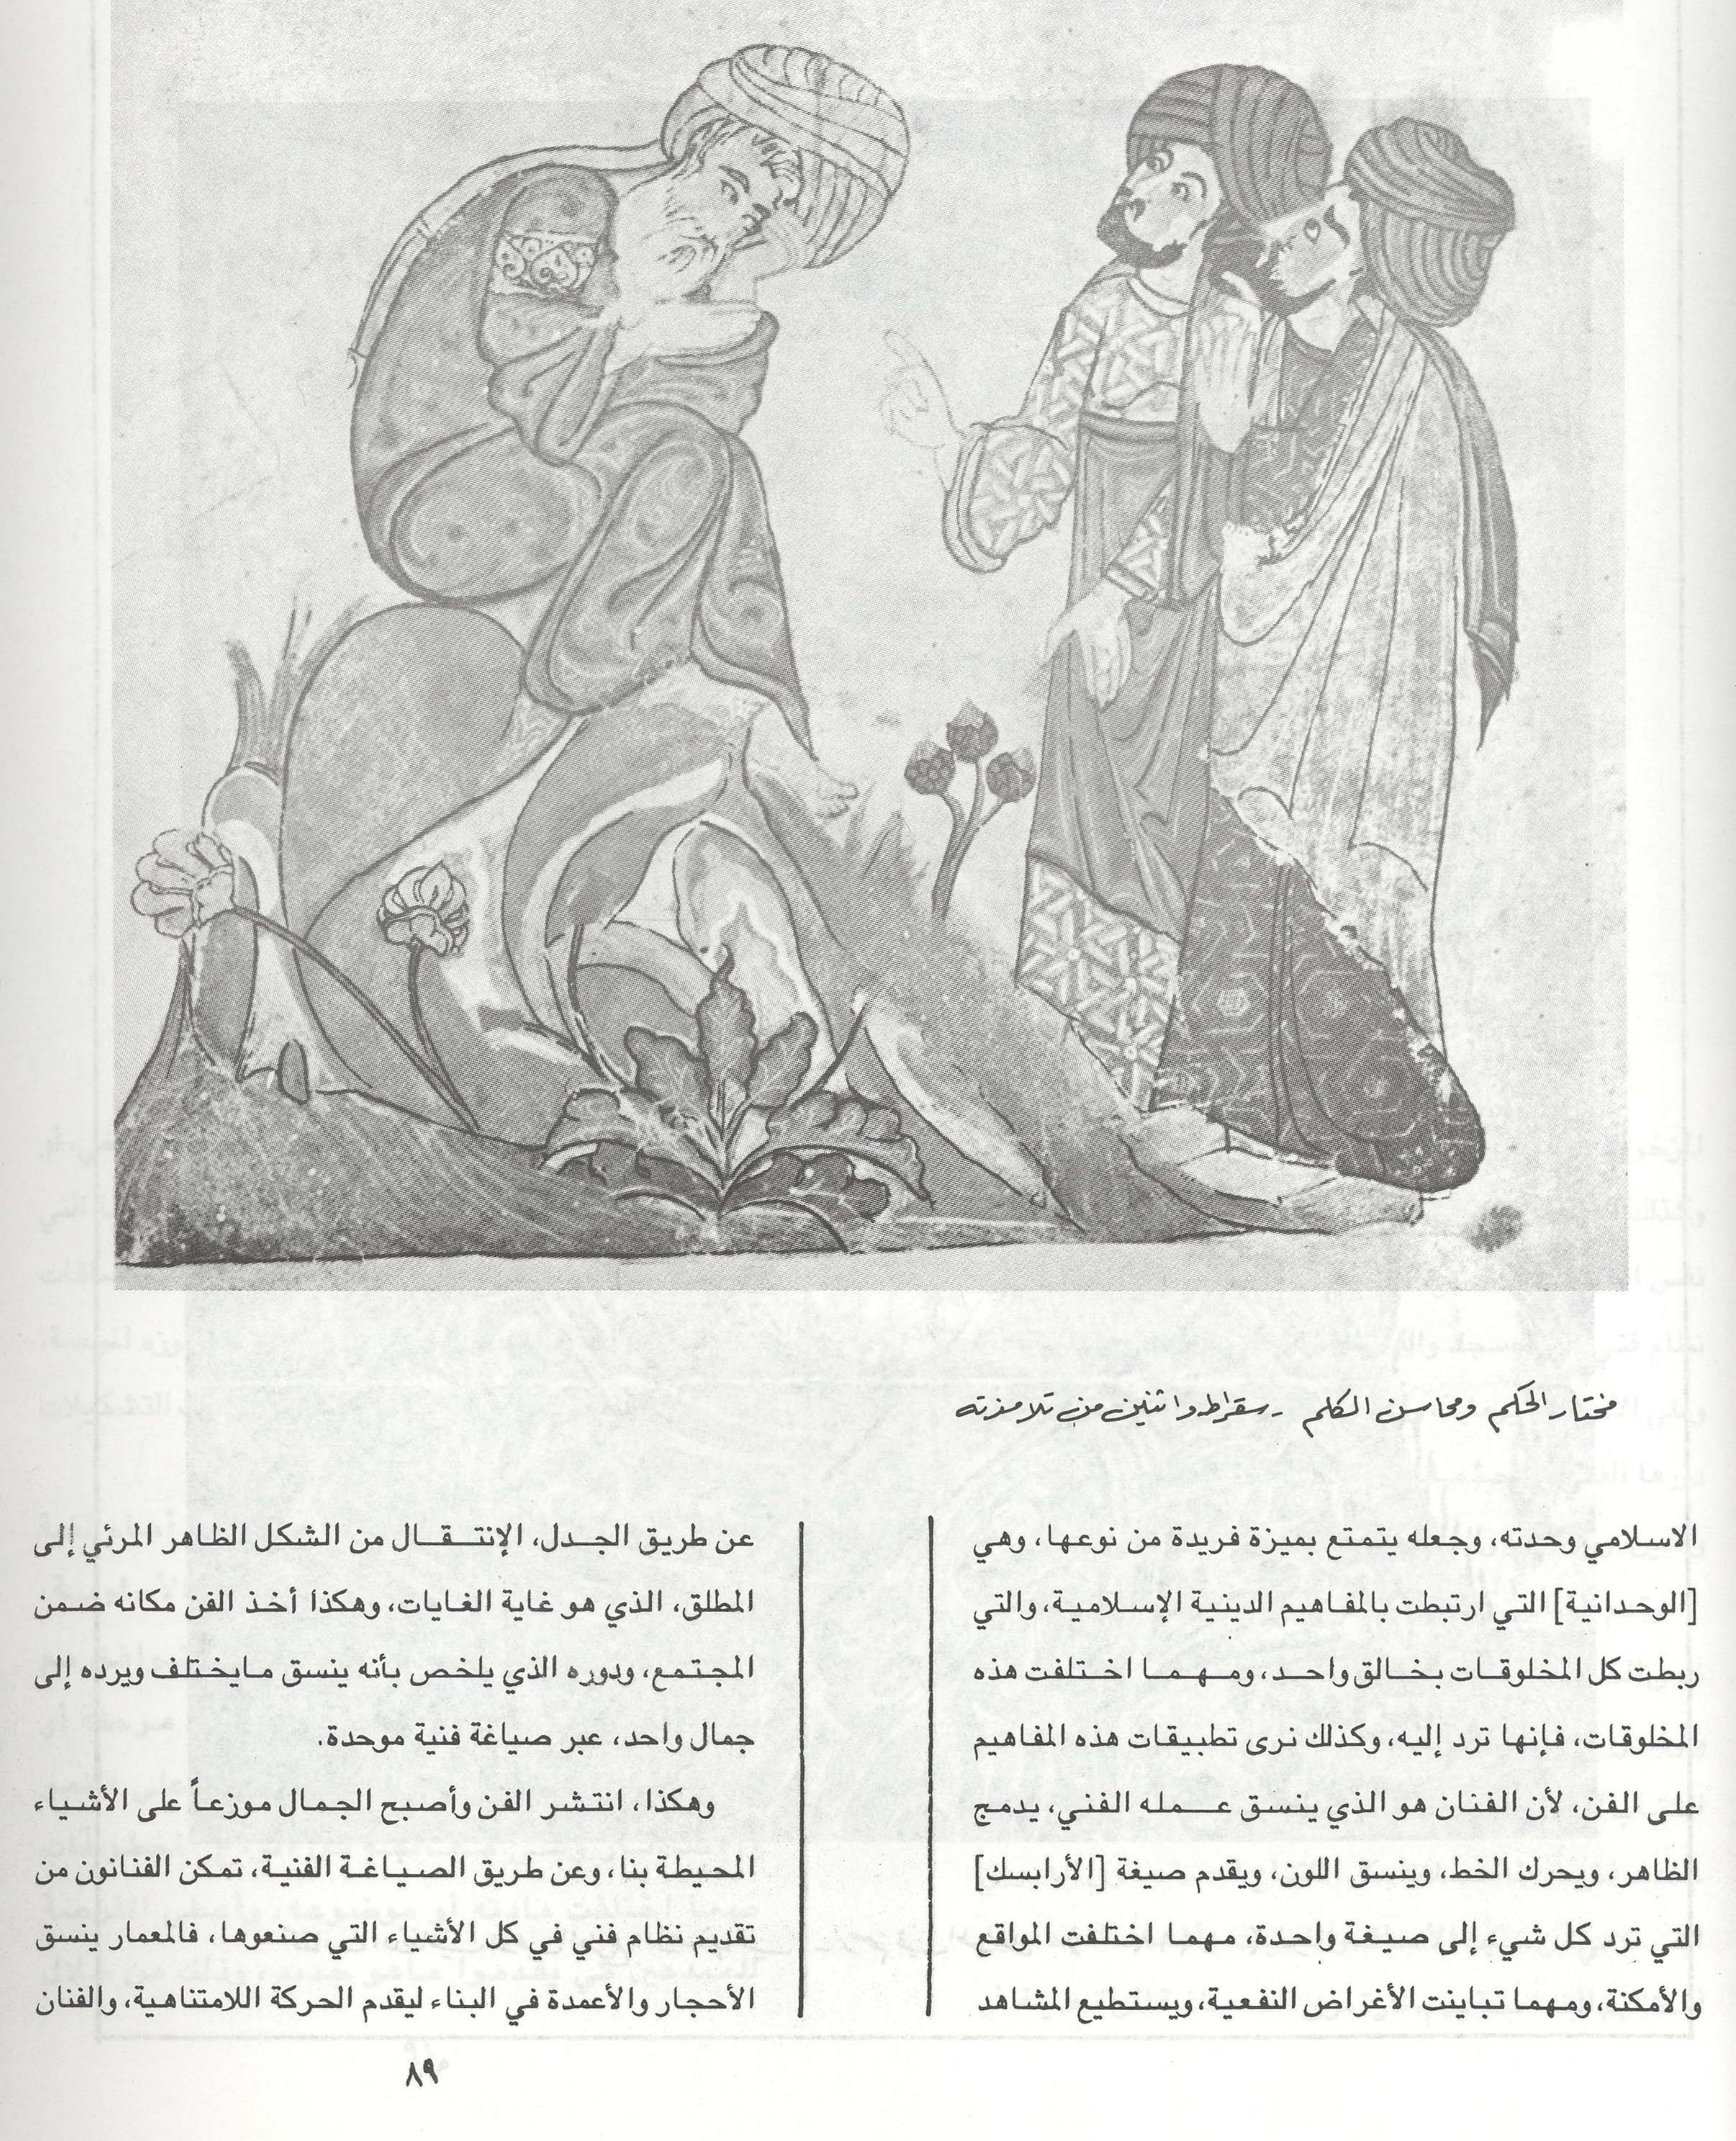 مختار الحكم ومحاسن الكلم - سقراط واثنين من تلامذته
الاسلامي وحدته، وجعله يتمتع بميزة فريدة من نوعها، وهي
[الوحدانية] التي ارتبطت بالمفاهيم الدينية الإسلامية، والتي
ربطت كل المخلوقات بخالق واحد، ومهما اختلفت هذه
المخلوقات، فإنها ترد إليه، وكذلك نرى تطبيقات هذه المفاهيم
على الفن، لأن الفنان هو الذي ينسق عمله الفني، يدمج
الظاهر، ويحرك الخط، وينسق اللون، ويقدم صيغة [الأرابسك]
التي ترد كل شيء إلى صيغة واحدة، مهما اختلفت المواقع
والأمكنة، ومهما تباينت الأغراض النفعية، ويستطيع المشاهد
عن طريق الجدل، الإنتقال من الشكل الظاهر المرئي إلى
المطلق، الذي هو غاية الغايات، وهكذا أخذ الفن مكانه ضمن
المجتمع، ودوره الذي يلخص بأنه ينسق مايختلف ويرده إلى
جمال واحد، عبر صياغة فنية موحدة.
وهكذا، انتشر الفن وأصبح الجمال موزعاً على الأشياء
المحيطة بنا، وعن طريق الصياغة الفنية، تمكن الفنانون من
تقديم نظام فني في كل الأشياء التي صنعوها، فالمعمار ينسق
الأحجار والأعمدة في البناء ليقدم الحركة اللامتناهية، والفنان
٨٩